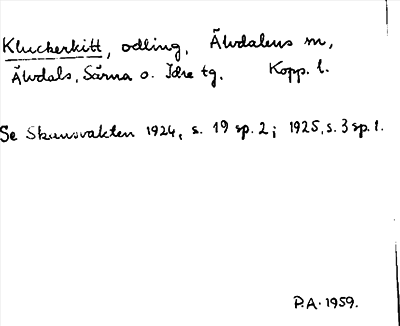 Kluckerkitt, odling, Älvdalens m,
Älvdals, Särna o. Idre tg. Kopp. l.
Se Skansvakten 1924, s. 19 sp. 2; 1925, s. 3 sp. 1.
P.A. 1959.